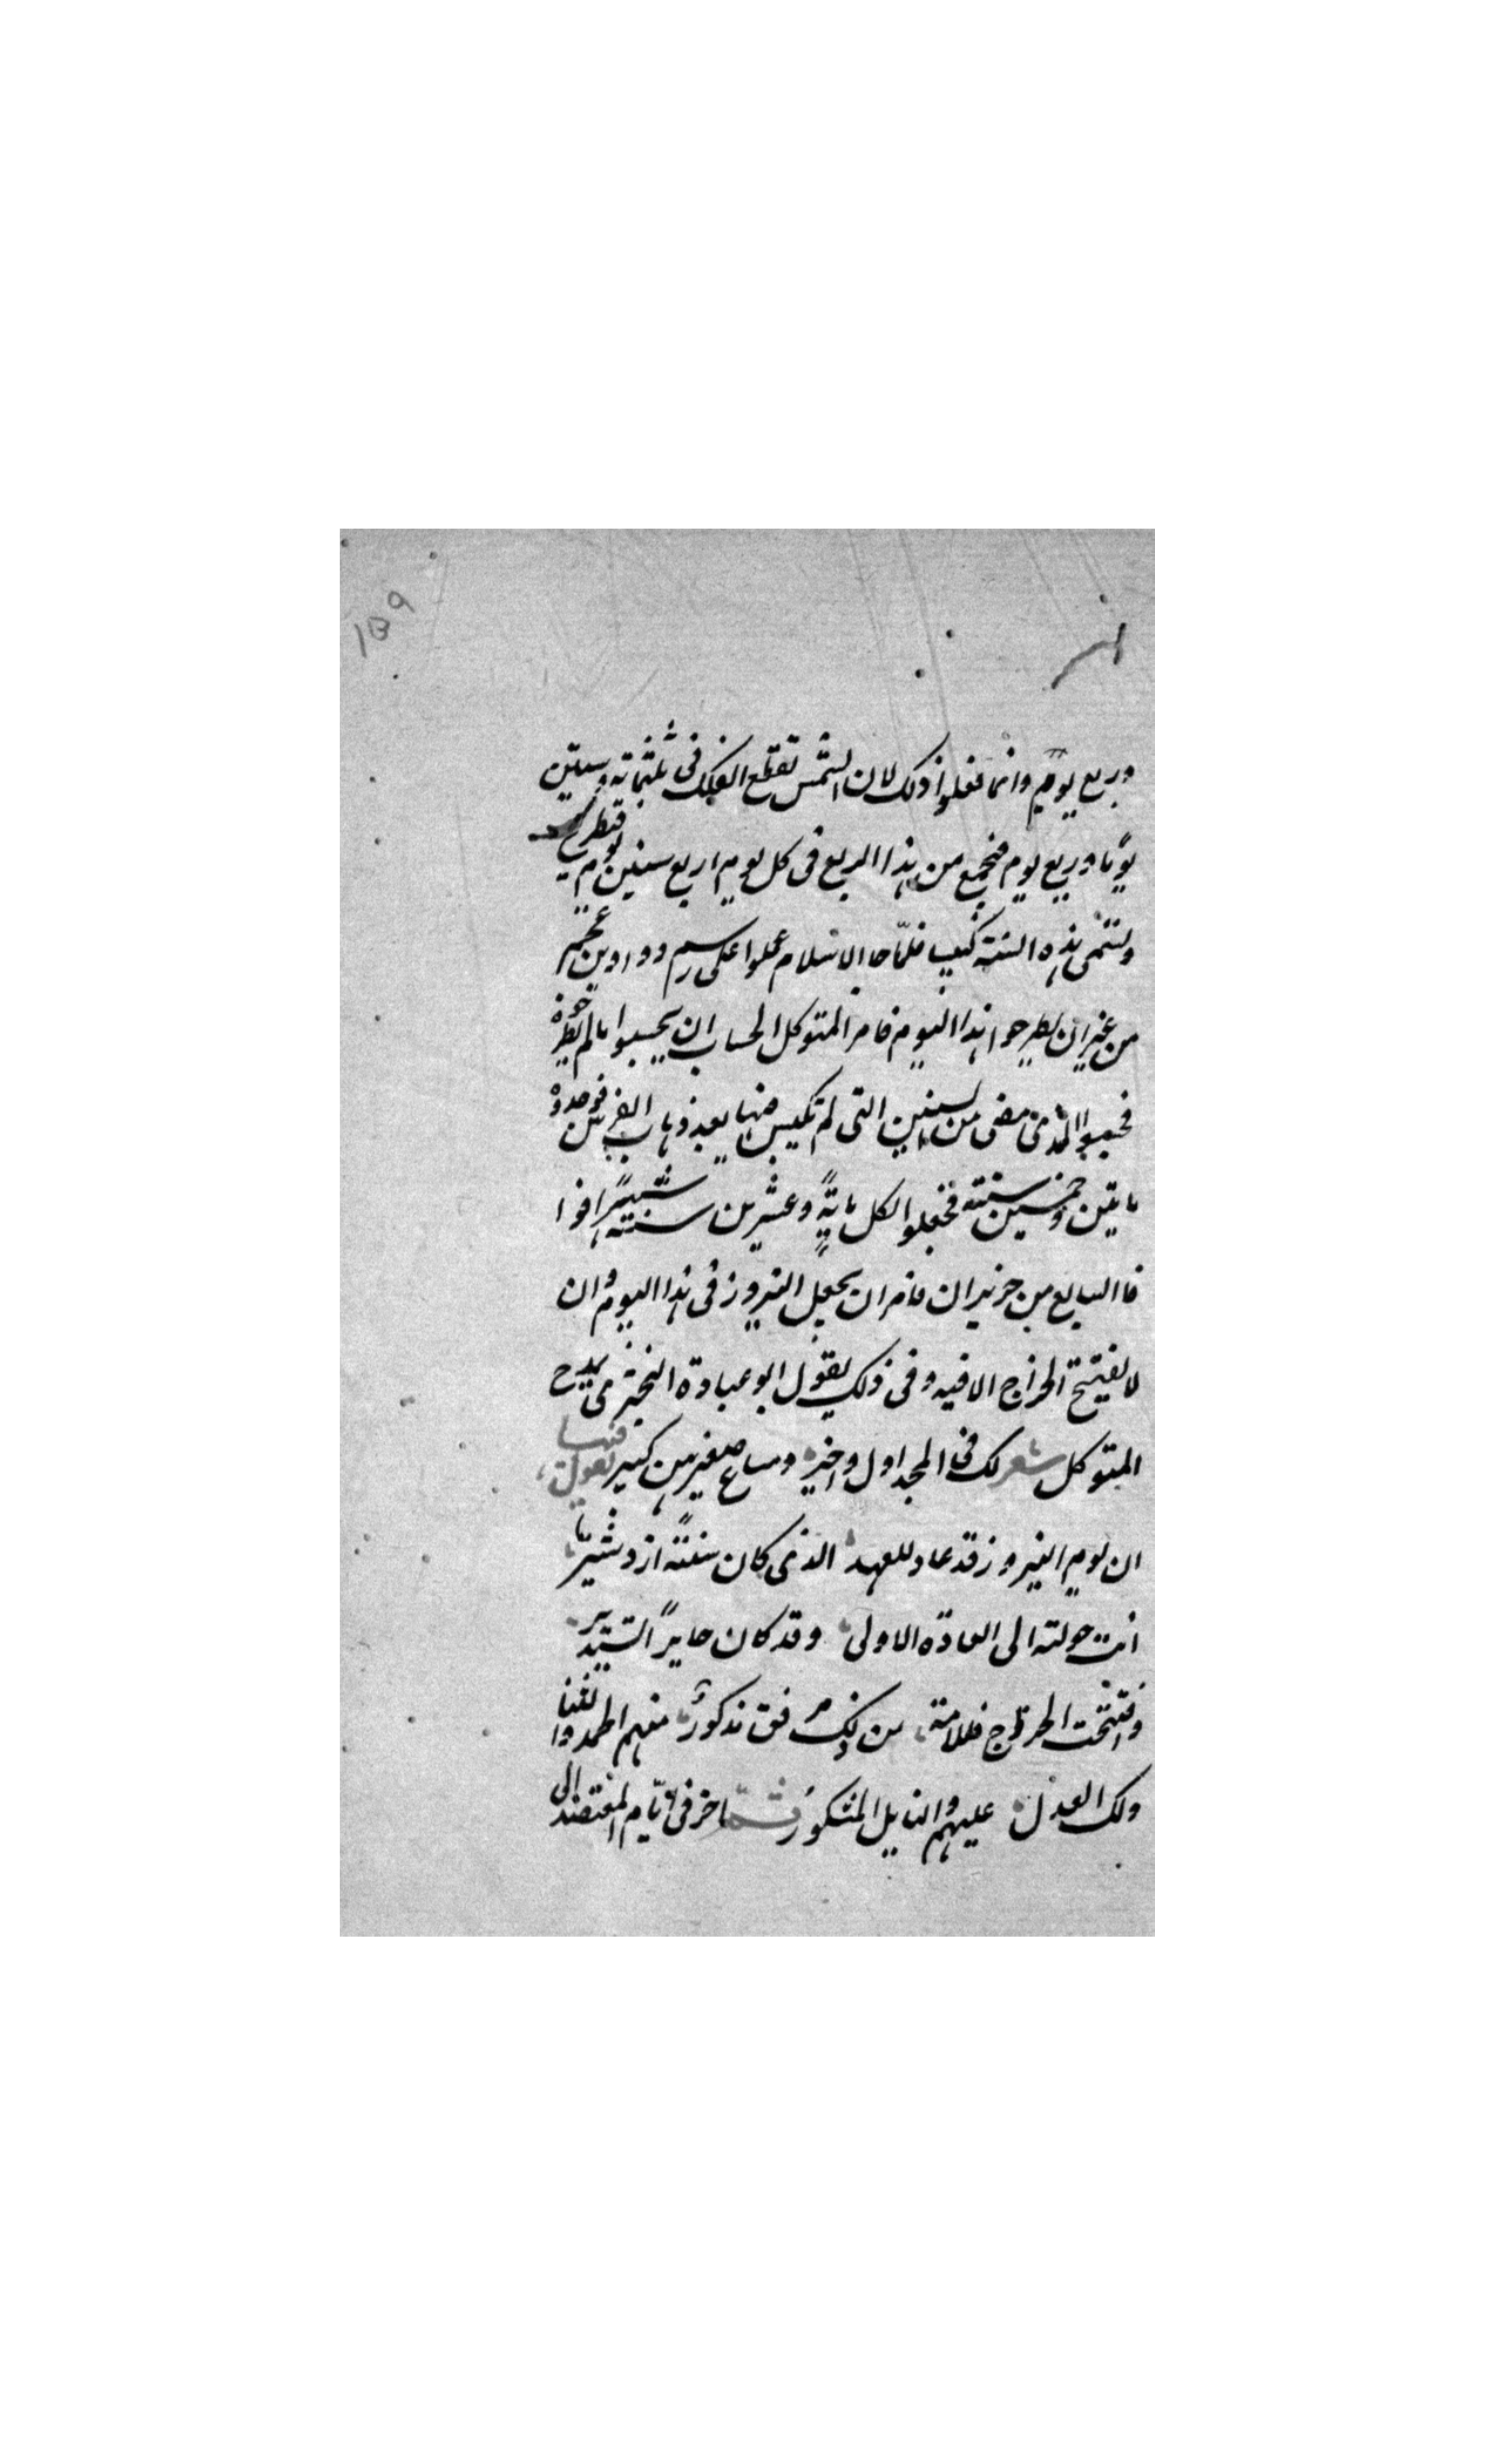 ١٥٩
وربع يوم وانما فعلوا ذلك لان الشمس تقطع الفلك فى ثلثمائة وستين
يومًا وربع يوم فيجمع من هذا الربع فى كل يوم اربع سنين يوم فتطرح
وتسمى هذه السنة كبيسة فلمّا جا الاسلام عملوا على رسم دواوين عجم
من غير ان يطرحوا هذا اليوم فامر المتوكل الحساب ان يحسبوا ما لم يطرحوه
فحسبوا الذى مضى من السنين التى لم تكبس منها بعد ذهاب الفرس فوجدوه
مايتين وخمسين سنة فجعلوا لكل ماية وعشرين سنة شهرًا فوا
فا السابع من حزيران فامر ان يجعل النيروز فى هذا اليوم وان
لا يفتتح الخراج الا فيه وفى ذلك يقول ابو عبادة البحترى يمدح
المتوكل شعر لك فى المجد اول واخير ومساع صغيرهن كبير فيها يقول
ان يوم النيروز قد عاد للعهد الذى كان سنّته ازدشير
انت حولته الى العادة الاولى وقد كان حايرًا يستدير
وافتتحت الخراج فللامة من ذلك فق مذكور منهم الحمد والثنا
ولك العدل عليهم والنايل المشكور اخر فى ايّام المعتضد الى